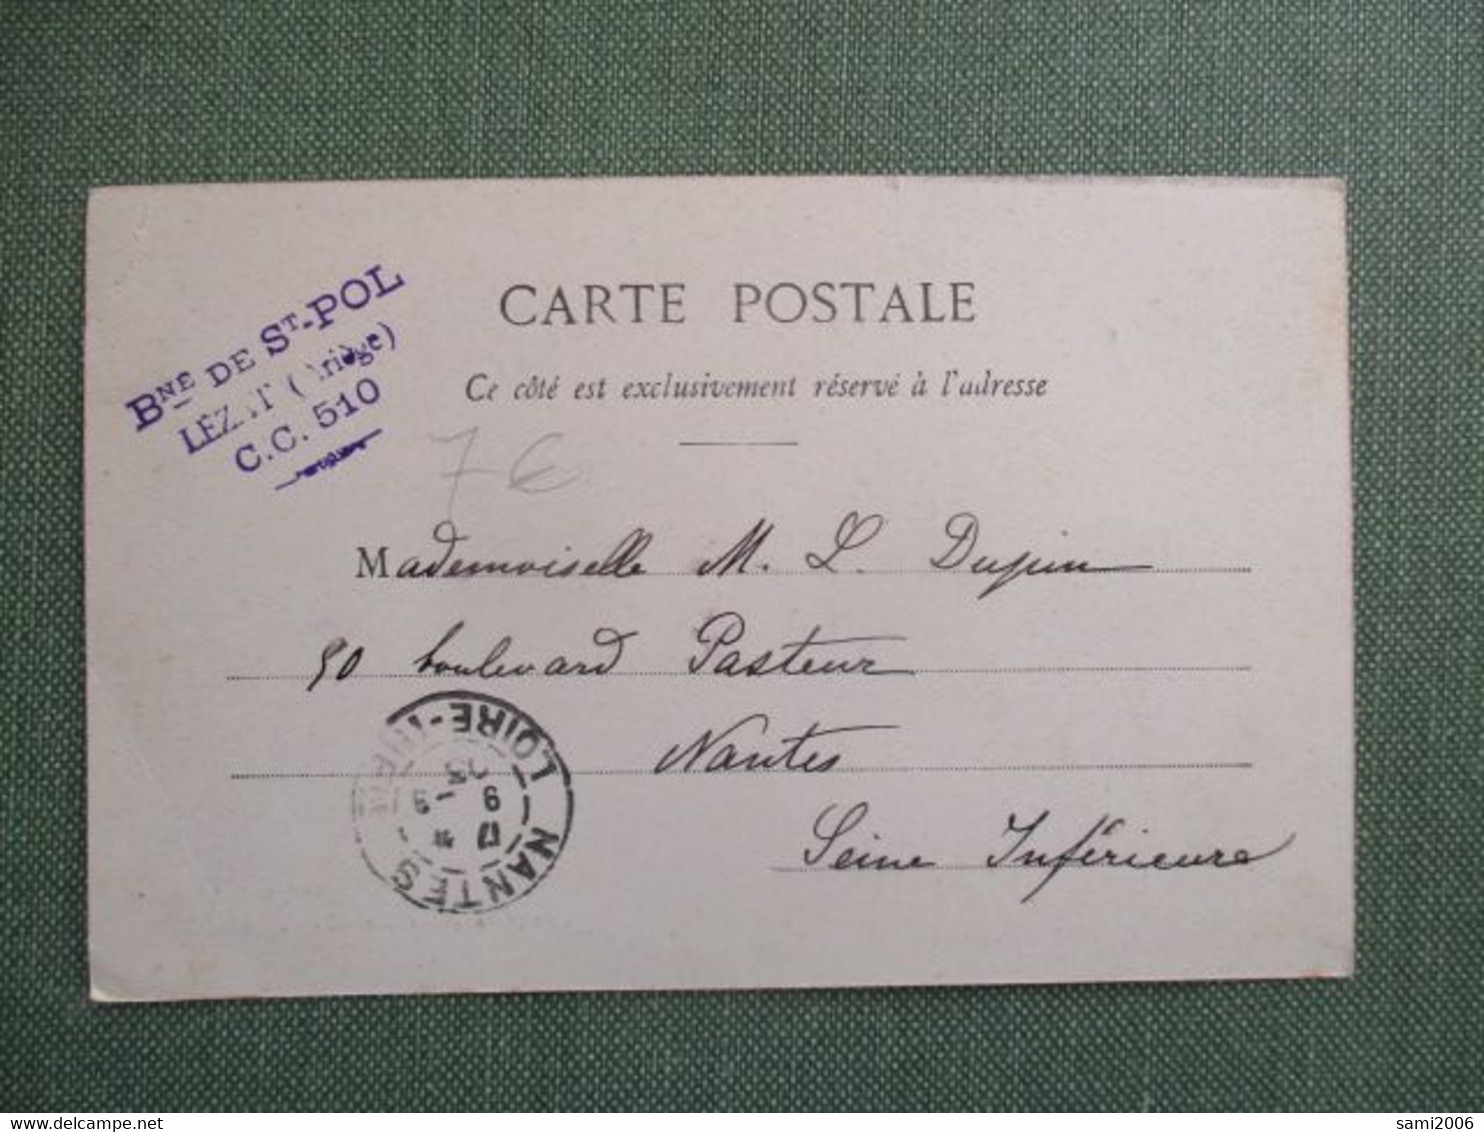 BNE DE ST-POL
LÉZAT (Ariège)
C.C. 510
CARTE POSTALE
Ce côté est exclusivement réservé à l'adresse
7€
Mademoiselle M. L. Dupin
90 boulevard Pasteur
Nantes
Seine Inférieure
NANTES LOIRE-INFRE
17
9 - 9
03
sami2006